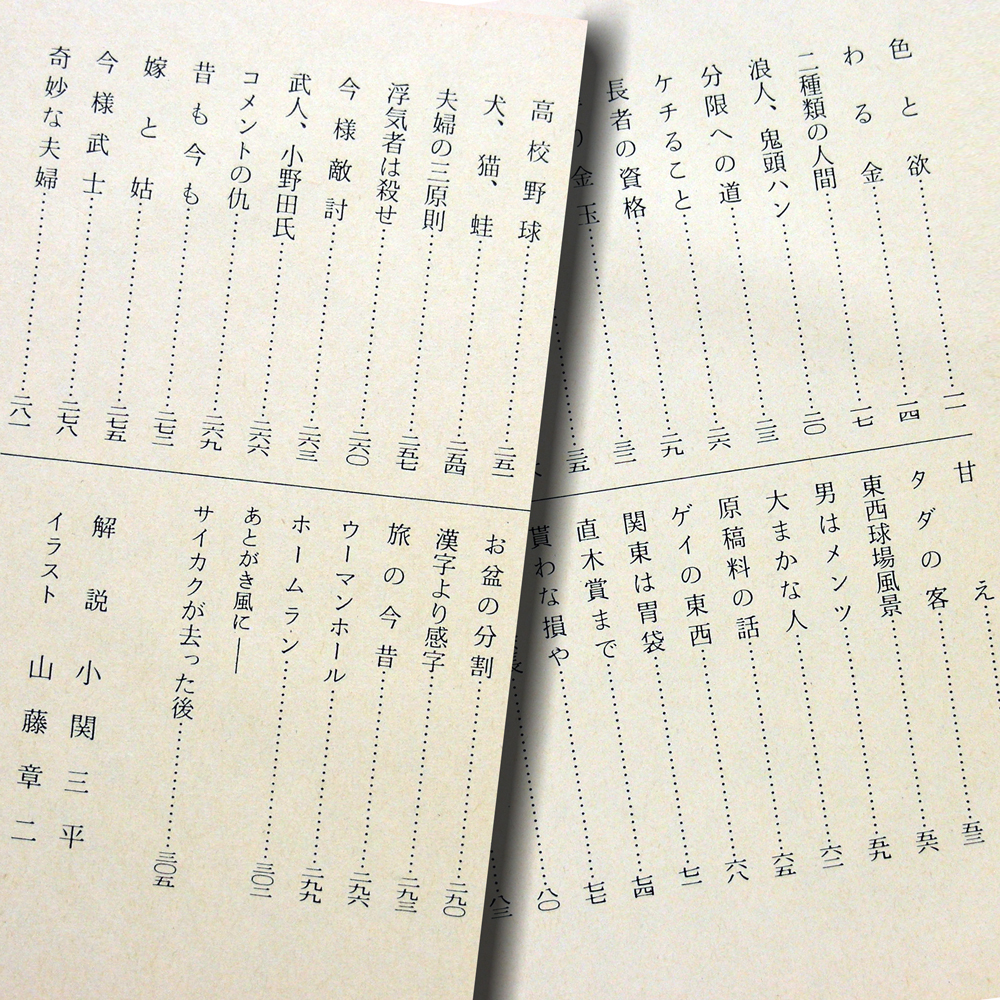 色と欲……一一
わる金……一四
二種類の人間……一七
浪人、鬼頭ハン……二〇
分限への道……二三
ケチること……二六
長者の資格……二九
の金玉……三二
……三五
甘え……
タダの客……五三
東西球場風景……五六
男はメンツ……五九
大まかな人……六二
原稿料の話……六五
ゲイの東西……六八
関東は胃袋……七一
直木賞まで……七四
貰わな損や……七七
……八〇
八三
高校野球……二五一
犬、猫、蛙……二五四
夫婦の三原則……二五七
浮気者は殺せ……二六〇
今様敵討……二六三
武人、小野田氏……二六六
コメントの仇……二六九
昔も今も……二七二
嫁と姑……二七五
今様武士……二七八
奇妙な夫婦……二八一
お盆の分割……二九〇
漢字より感字……二九三
旅の今昔……二九六
ウーマンホール……二九九
ホームラン……三〇二
あとがき風に――
サイカクが去った後……三〇五
解説 小関三平
イラスト 山藤章二